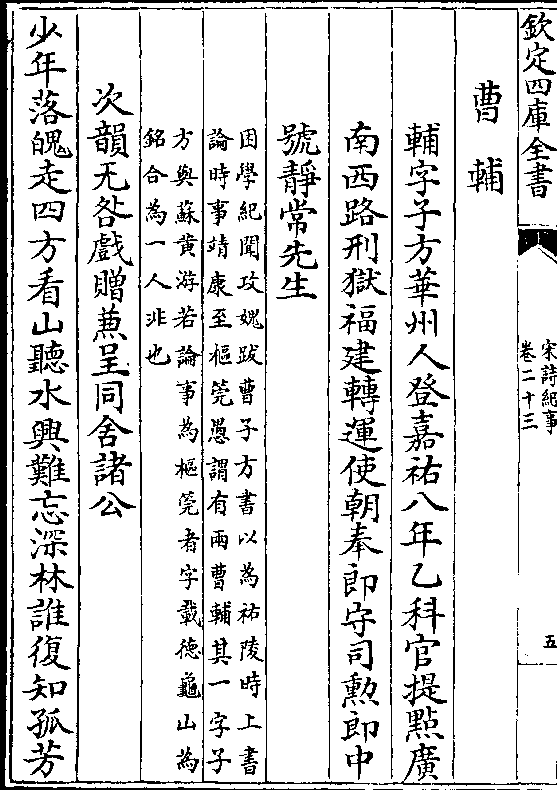 欽定四庫全書
宋詩紀事
卷二十三
五
曹輔
輔字子方華州人登嘉祐八年乙科官提點廣
南西路刑獄福建轉運使朝奉郎守司勲郎中
號静常先生
困學紀聞攻媿跋曹子方書以為祐陵時上書
論時事靖康至樞筦愚謂有兩曹輔其一字子
方與蘇黄游若論事為樞筦者字載德龜山為
銘合為一人非也
次韻无咎戲贈蒹呈同舍諸公
少年落魄走四方看山聽水興難忘深林誰復知孤芳